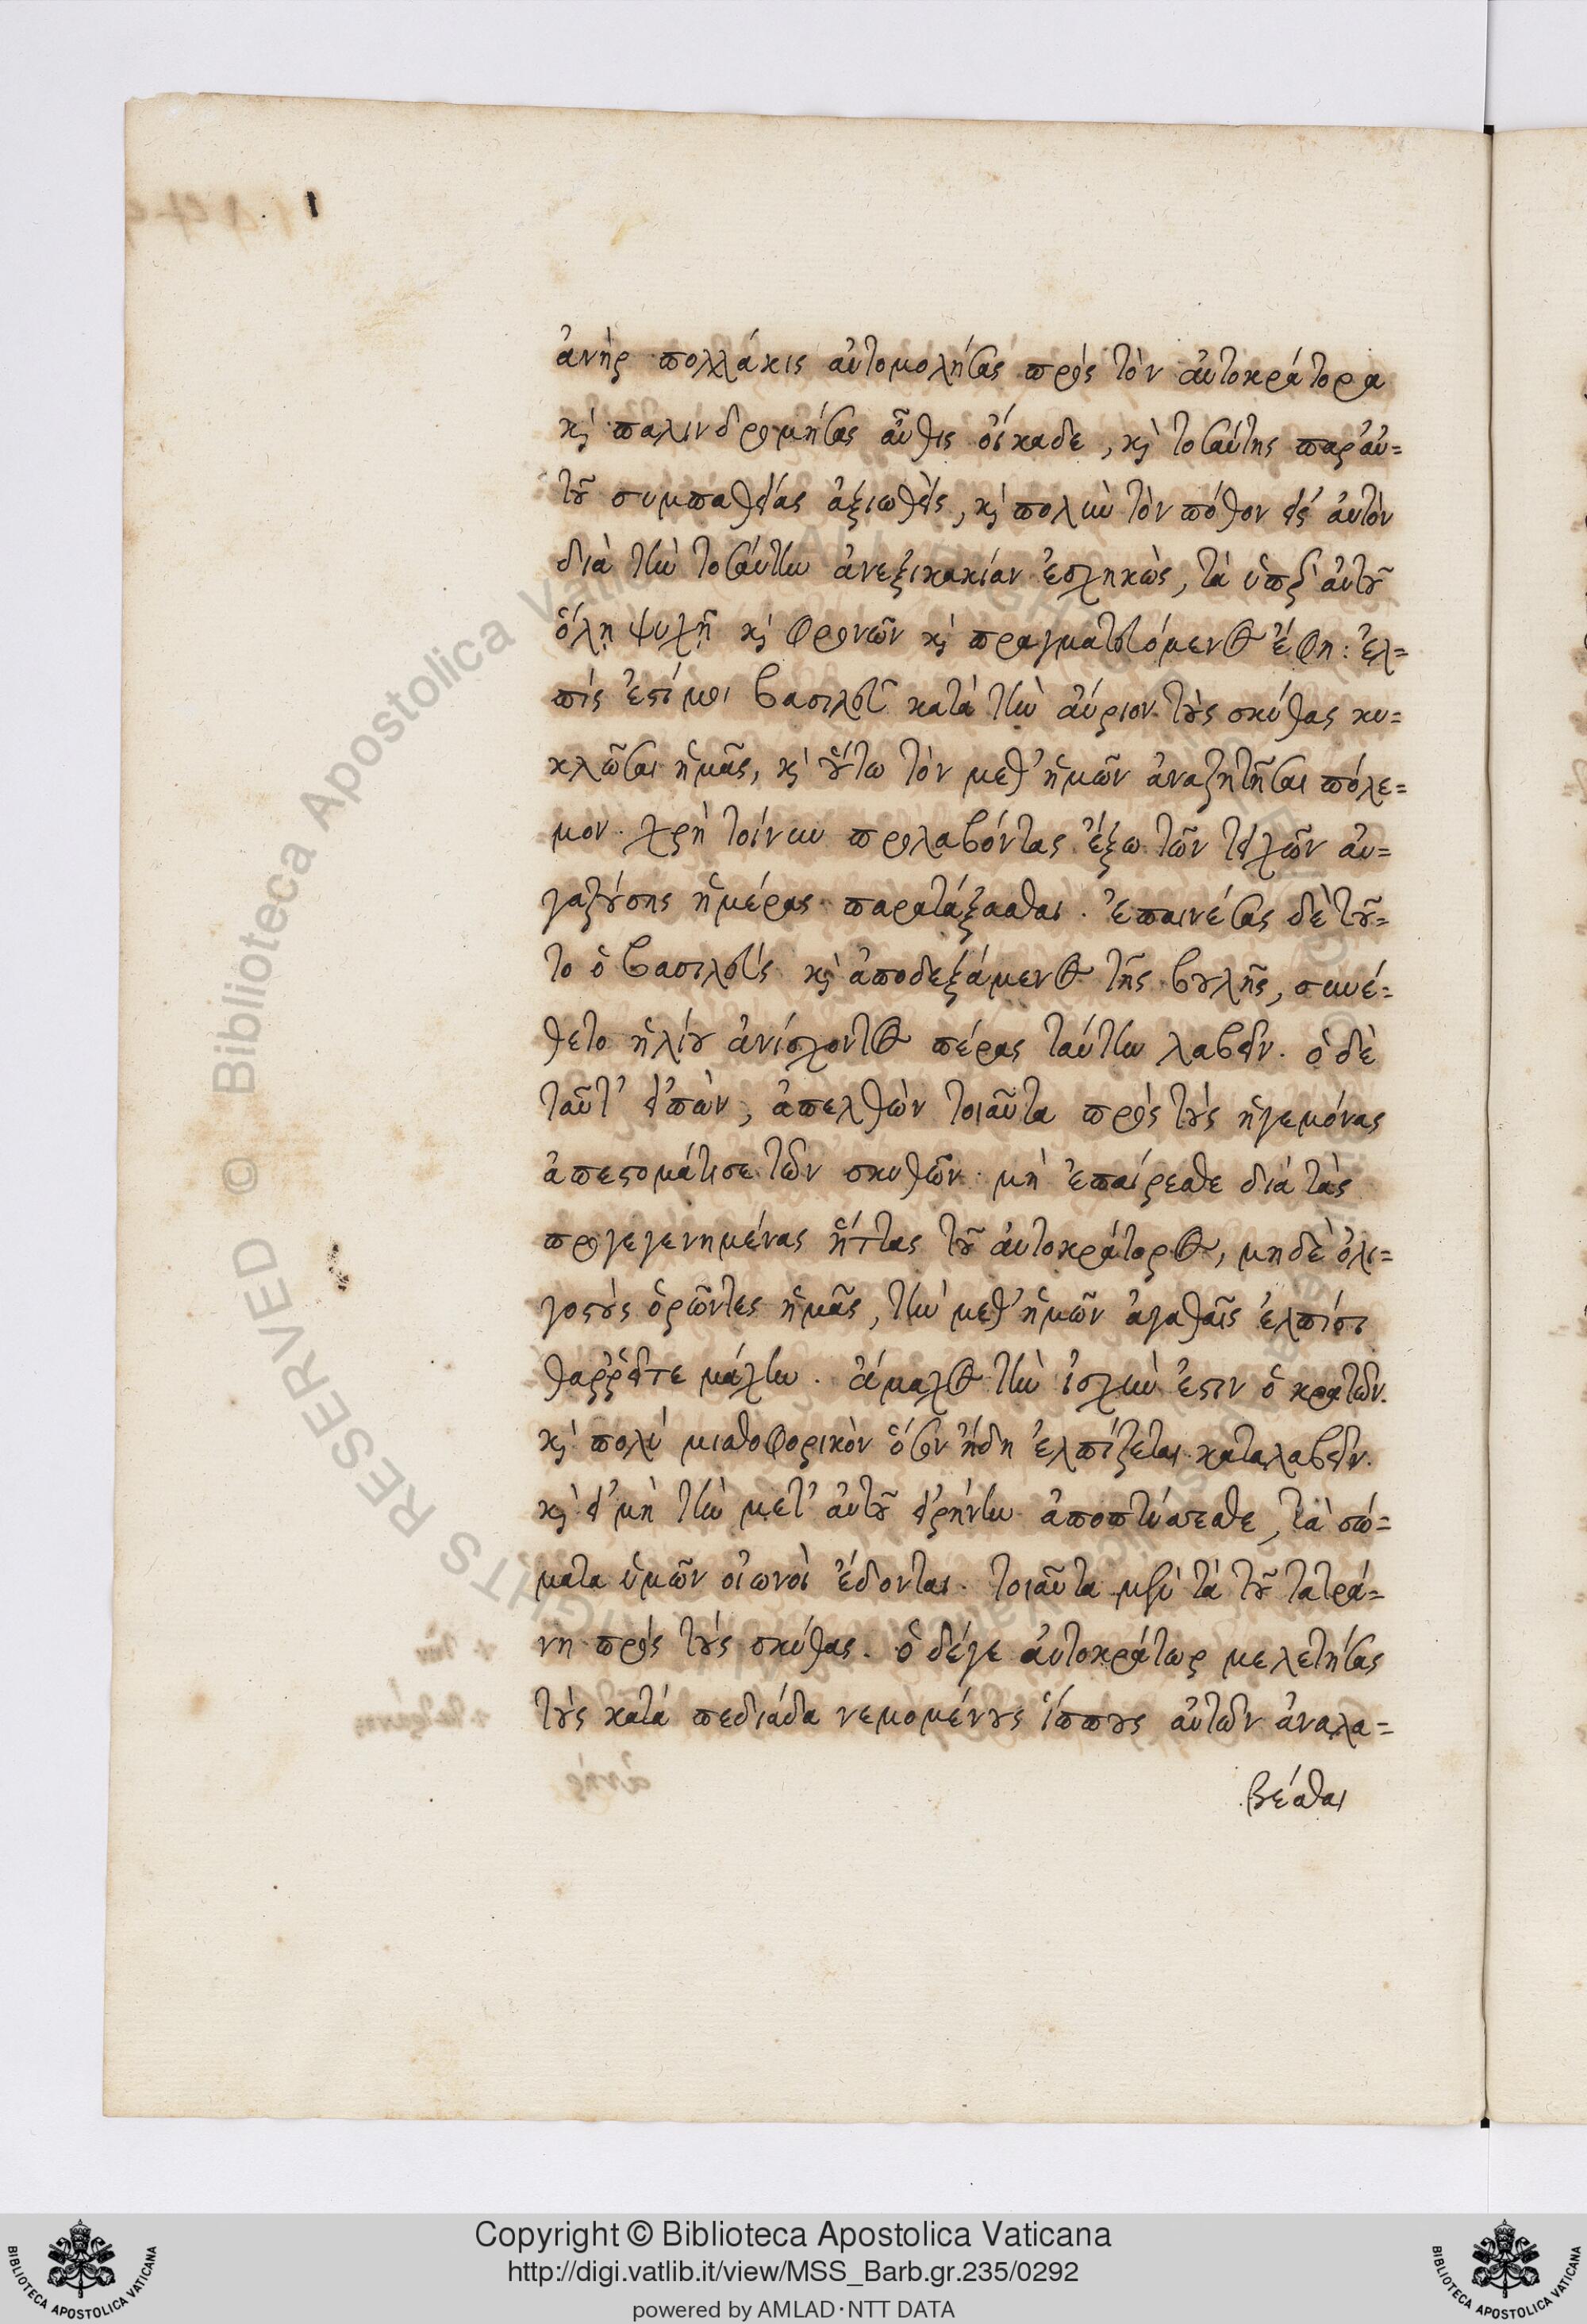 ἀνὴρ πολλάκις αὐτομολήσας πρὸς τὸν αὐτοκράτορα
κὶ παλινδρομήσας αὖθις οἴκαδε, κὶ τοσαύτης παρ' αὐ=
τοῦ συμπαθείας ἀξιωθεὶς, κὶ πολὺν τὸν πόθον εἰς αὐτὸν
διὰ τὴν τοσαύτην ἀνεξικακίαν ἐσχηκὼς, τὰ ὑπὲρ αὐτοῦ
ὅλῃ ψυχῇ κὶ φρονῶν κὶ πραγματευόμενος ἔφη: ἐλ=
πίς ἐστί μοι βασιλεῦ κατὰ τὴν αὔριον τοὺς σκύθας κυ=
κλῶσαι ἡμᾶς, κὶ οὕτω τὸν μεθ' ἡμῶν ἀναζητῆσαι πόλε=
μον. χρὴ τοίνυν προλαβόντας ἔξω τῶν τειχῶν αὐ=
γαζούσης ἡμέρας παρατάξασθαι. ἐπαινέσας δὲ τοῦ=
το ὁ βασιλεὺς κὶ ἀποδεξάμενος τῆς βουλῆς, συνέ=
θετο ἡλίου ἀνίσχοντος πέρας ταύτην λαβεῖν. ὁ δὲ
ταῦτ' εἰπὼν, ἀπελθὼν τοιαῦτα πρὸς τοὺς ἡγεμόνας
ἀπεστομάτισε τῶν σκυθῶν. μὴ ἐπαίρεσθε διὰ τὰς
προγεγενημένας ἥττας τοῦ αὐτοκράτορος, μηδὲ ὀλι=
γοστοὺς ὁρῶντες ἡμᾶς, τὴν μεθ' ἡμῶν ἀγαθαῖς ἐλπίσι
θαῤῥεῖτε μάχην. ἄμαχος τὴν ἰσχύν ἐστιν ὁ κρατῶν.
κὶ πολὺ μισθοφορικὸν ὅσον ἤδη ἐλπίζεται καταλαβεῖν.
κὶ εἰ μὴ τὴν μετ' αὐτοῦ εἰρήνην ἀποπτύσεσθε, τὰ σώ=
ματα ὑμῶν οἰωνοὶ ἔδονται. τοιαῦτα μὲν τὰ τοῦ τατρά=
νη πρὸς τοὺς σκύθας. ὁ δέ γε αὐτοκράτωρ μελετήσας
τοὺς κατὰ πεδιάδα νεμομένους ἵππους αὐτῶν ἀναλα=
βέσθαι
Copyright © Biblioteca Apostolica Vaticana
http://digi.vatlib.it/view/MSS_Barb.gr.235/0292
powered by AMLAD·NTT DATA
BIBLIOTECA APOSTOLICA VATICANA
BIBLIOTECA APOSTOLICA VATICANA